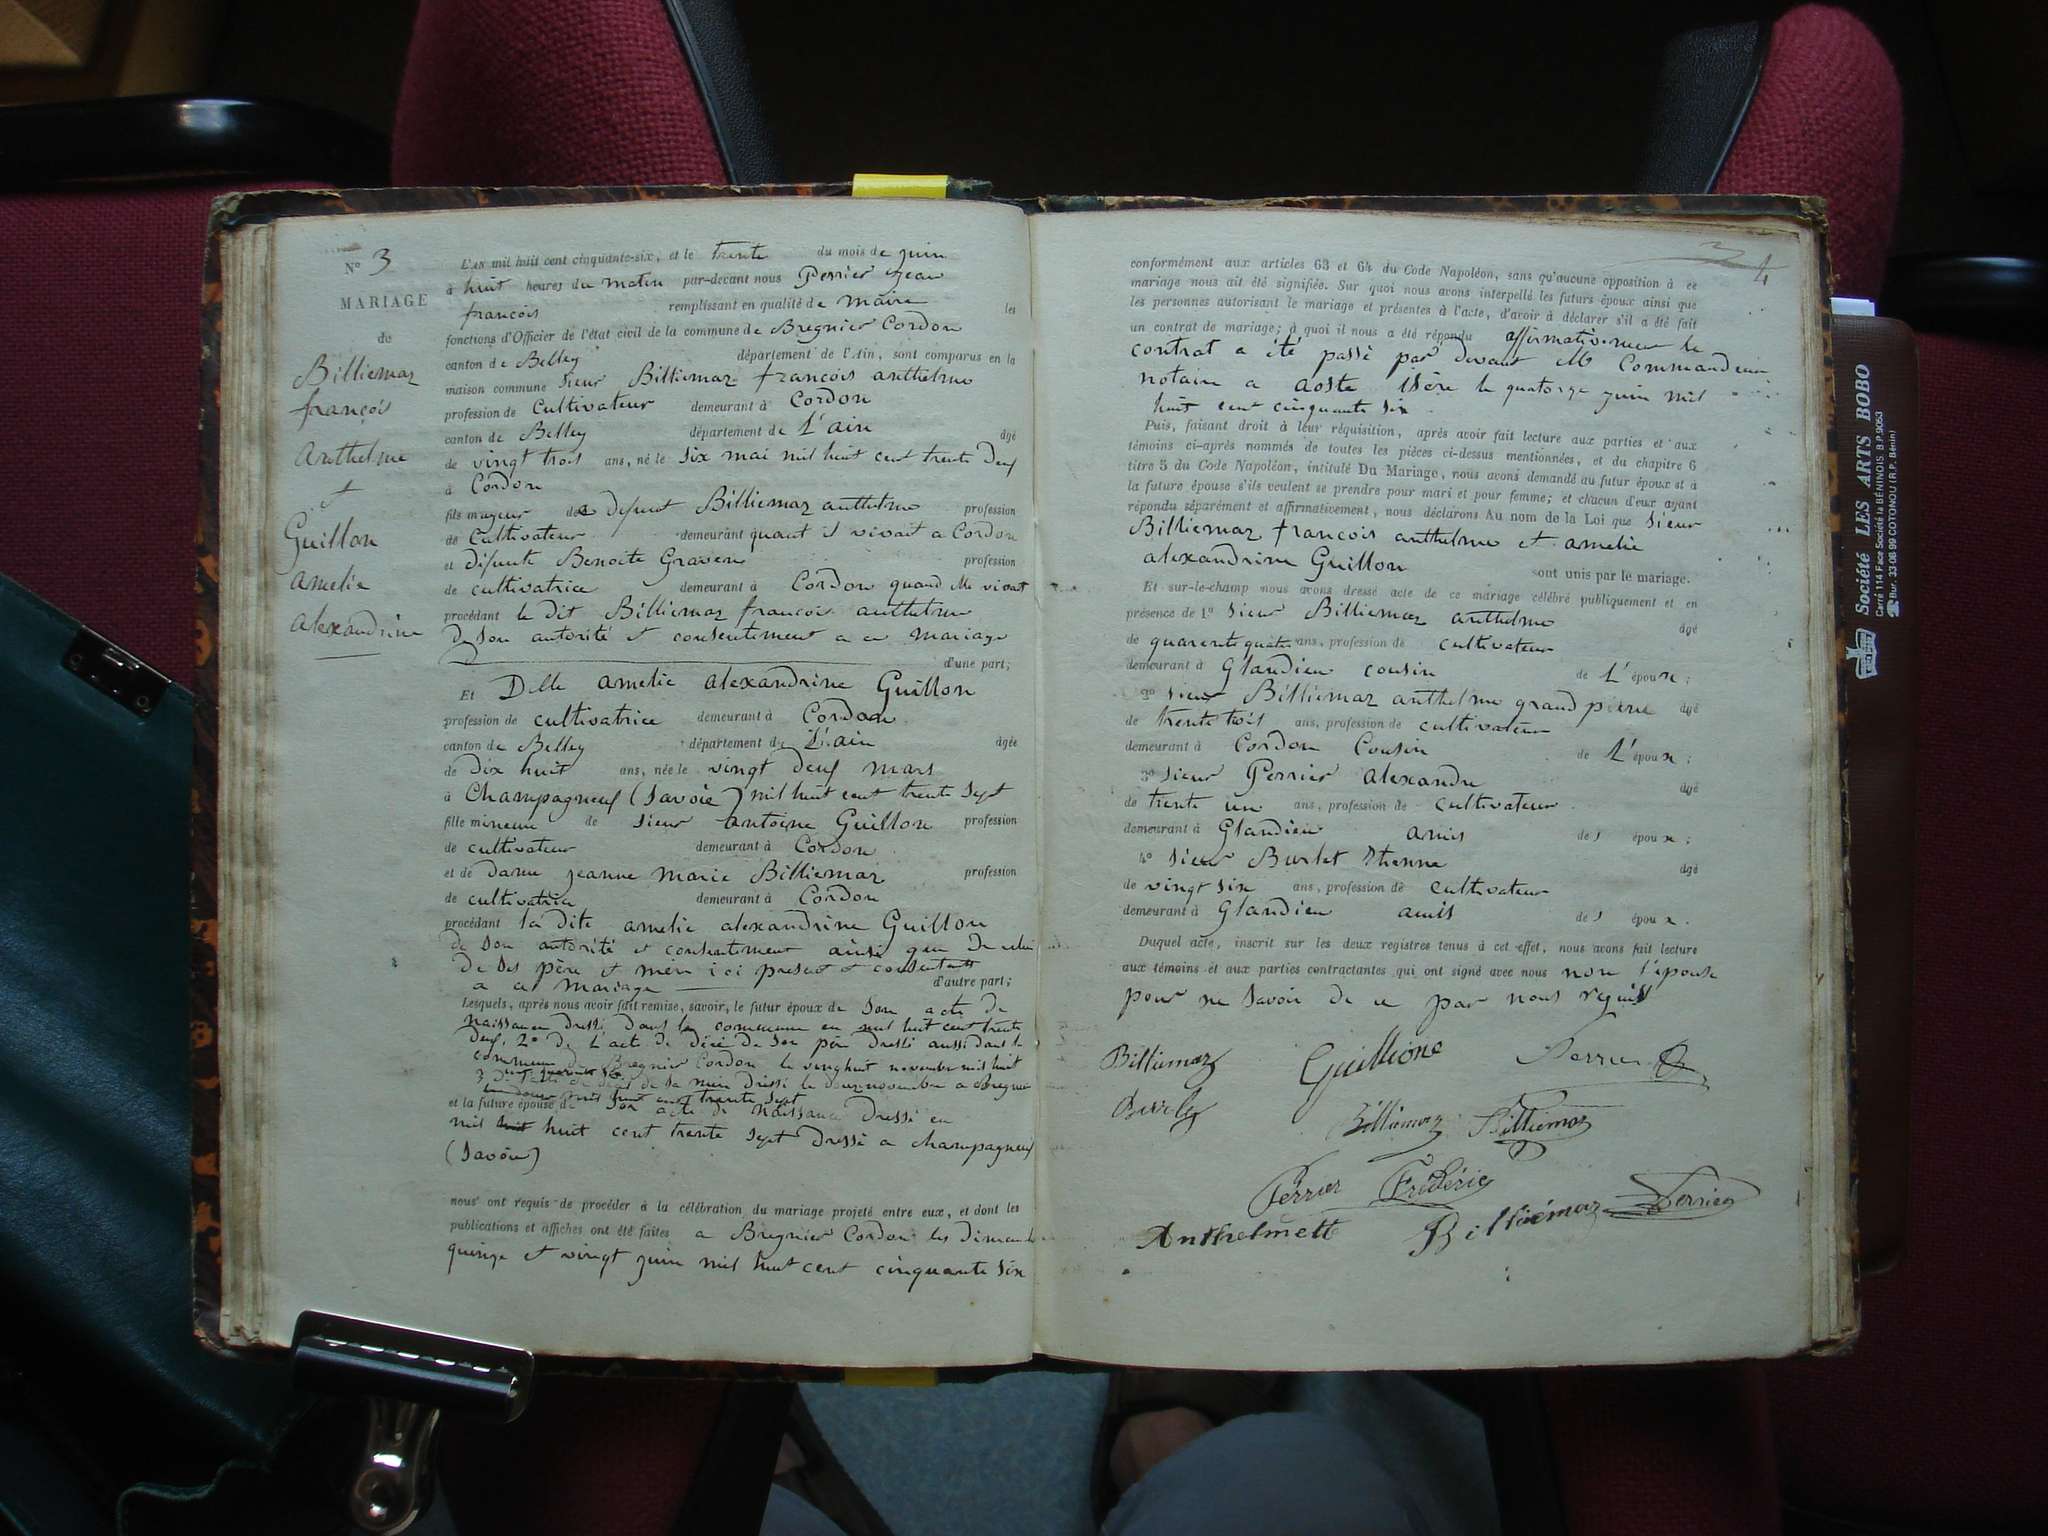 N° 3
MARIAGE
de
Billiemaz
françois
Anthelme
et
Guillon
amelie
alexandrine
L'AN mil huit cent cinquante-six, et le trente du mois de juin
à huit heures du matin par-devant nous Perrier Jean
françois remplissant en qualité de maire les
fonctions d'Officier de l'état civil de la commune de Bregnier Cordon
canton de Belley département de l'Ain, sont comparus en la
maison commune sieur Billiemaz françois anthelme
profession de cultivateur demeurant à Cordon
canton de Belley département de L'ain âgé
de vingt trois ans, né le six mai mil huit cent trente deux
à Cordon
fils majeur de defunt Billiemaz anthelme profession
de Cultivateur demeurant quant il vivait a Cordon
et défunte Benoite Graven profession
de cultivatrice demeurant à Cordon quand elle vivait
procédant le dit Billiemaz françois anthelme
De son autorité et consentement a ce mariage
d'une part;
Et Delle amelie alexandrine Guillon
profession de cultivatrice demeurant à Cordon
canton de Belley département de L'ain âgée
de dix huit ans, née le vingt deux mars
à Champagneux (Savoie) mil huit cent trente sept
fille mineure de sieur antoine Guillon profession
de cultivateur demeurant à Cordon
et de dame jeanne marie Billiemaz profession
de cultivatrice demeurant à Cordon
procédant la dite amelie alexandrine Guillon
de son autorité et consentement ainsi que de celui
de ses père et mère ici present et consentant
a ce mariage d'autre part;
Lesquels, après nous avoir fait remise, savoir, le futur époux de son acte de
naissance dressé dans la commune en mil huit cent trente
deux, 2° de l'acte de décé de son père dressé aussi dans la
commune de Bregnier Cordon le vingt huit novembre mil huit
3 de sa mère dressé le novembre a Bregnier
mil huit cent trente sept
et la future épouse de son acte de naissance dressé en
mil huit huit cent trente sept dressé a champagneux
(Savoie)
nous ont requis de procéder à la célébration du mariage projeté entre eux, et dont les
publications et affiches ont été faites a Bregnier Cordon les dimanche
quinze et vingt juin mil huit cent cinquante six
3 4
conformément aux articles 63 et 64 du Code Napoléon, sans qu'aucune opposition à ce
mariage nous ait été signifiée. Sur quoi nous avons interpellé les futurs époux ainsi que
les personnes autorisant le mariage et présentes à l'acte, d'avoir à déclarer s'il a été fait
un contrat de mariage; à quoi il nous a été répondu affirmativement le
contrat a été passé par devant Me Commandeur
notaire a aoste isère le quatorze juin mil
huit cent cinquante six.
Puis, faisant droit à leur réquisition, après avoir fait lecture aux parties et aux
témoins ci-après nommés de toutes les pièces ci-dessus mentionnées, et du chapitre 6
titre 5 du Code Napoléon, intitulé Du Mariage, nous avons demandé au futur époux et à
la future épouse s'ils veulent se prendre pour mari et pour femme; et chacun d'eux ayant
répondu séparément et affirmativement, nous déclarons Au nom de la Loi que sieur
Billiemaz françois anthelme et amelie
alexandrine Guillon sont unis par le mariage.
Et sur-le-champ nous avons dressé acte de ce mariage célébré publiquement et en
présence de 1° sieur Billiemaz anthelme âgé
de quarente quatre ans, profession de cultivateur
demeurant à Glandieu cousin de L'époux;
2° sieur Billiemaz anthelme grand pierre âgé
de trente trois ans, profession de cultivateur
demeurant à Cordon Cousin de L'époux;
3° sieur Perrier alexandre âgé
de trente un ans, profession de cultivateur.
demeurant à Glandieu amis de l'époux;
4° sieur Burlet Etienne âgé
de vingt six ans, profession de cultivateur
demeurant à Glandieu amis de l'époux.
Duquel acte, inscrit sur les deux registres tenus à cet effet, nous avons fait lecture
aux témoins et aux parties contractantes qui ont signé avec nous non l'epouse
pour ne savoir de ce par nous requis
Billiemaz Guillione Perrier
Burlet Billiemaz Billiemaz
Perrier Frédéric
Anthelmette Billiémaz Perrier
Société LES ARTS BOBO
Carré 1114 Face Société la BÉNINOIS. B.P.9053
Bur. 33-06-99 COTONOU (R.P. Bénin)